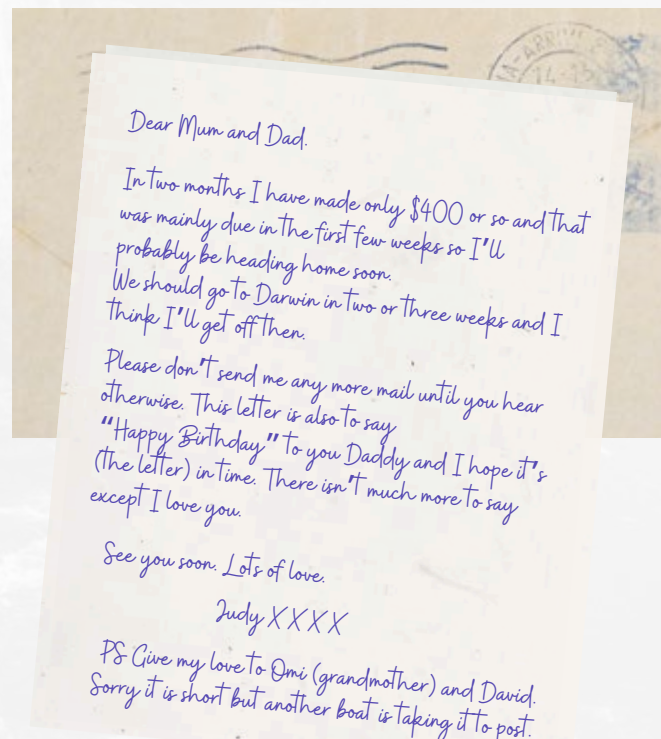 14-15
Dear Mum and Dad.
In two months I have made only $400 or so and that
was mainly due in the first few weeks so I'll
probably be heading home soon.
We should go to Darwin in two or three weeks and I
think I'll get off then.
Please don't send me any more mail until you hear
otherwise. This letter is also to say
"Happy Birthday" to you Daddy and I hope it's
(the letter) in time. There isn't much more to say
except I love you.
See you soon. Lots of love.
Judy XXXX
PS Give my love to Omi (grandmother) and David.
Sorry it is short but another boat is taking it to post.